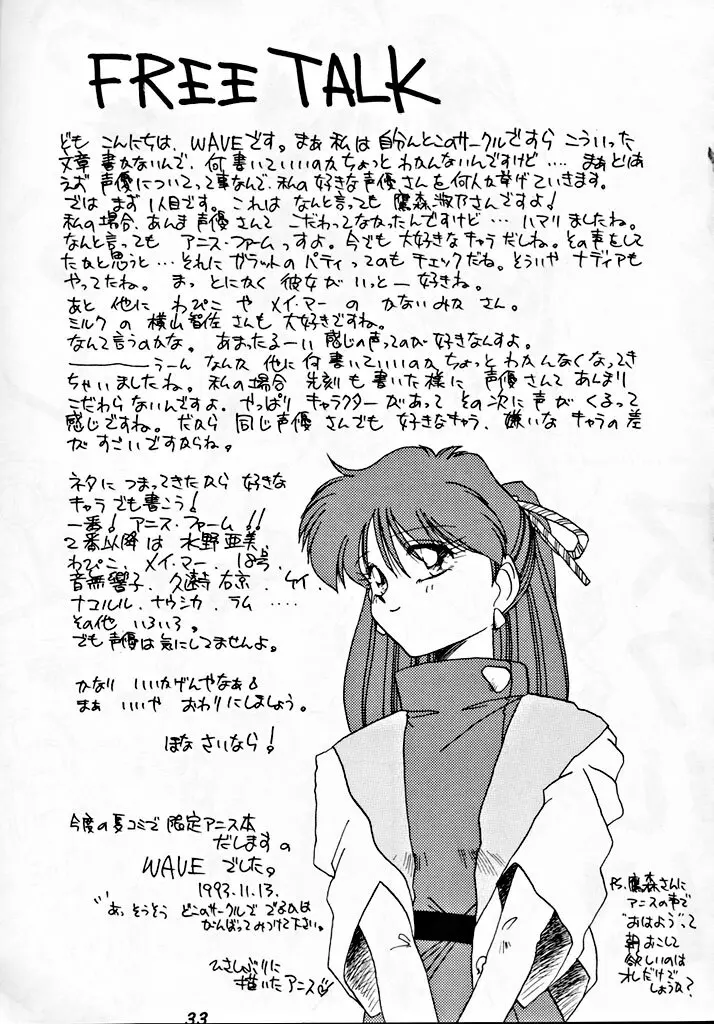 FREE TALK
ども こんにちは、WAVEです。まぁ 私は 自分んとこのサークルですら こういった
文章 書かないんで、何 書いていいのか ちょっと わかんないんですけど ‥‥ まぁ とりあ
えず 声優についてって事なんで、私の好きな声優さんを何人か挙げていきます。
では まず 1人目です。これは なんと言っても 鷹森淑乃さんですよ!
私の場合、あんま 声優さんて こだわってなかったんですけど‥‥ ハマりましたね。
なんと言っても アニス・ファームっすよ。今でも 大好きなキャラだしね。その声をして
たかと思うと‥‥それに ガラットの パティってのもチェックだね。そういや ナディアも
やってたね。 まっ とにかく 彼女が いっとー 好きね。
あと 他に わぴこ や メイ・マー の かないみか さん。
ミルク の 横山智佐 さんも 大好きですね。
なんて言うのかな。あまったるーい 感じの声ってのが好きなんすよ。
――――うーん なんか 他に何書いていいのか ちょっと わかんなくなってき
ちゃいましたね。私の場合 先刻も書いた様に 声優さんて あんまり
こだわらないんですよ。やっぱり キャラクターがあって その次に声が くるって
感じですね。だから 同じ声優 さんでも 好きなキャラ、嫌いな キャラの差
が すごいですからね。
ネタに つまってきたから 好きな
キャラでも書こう!
一番! アニス・ファーム!!
2番以降は 水野亜美、
わぴこ、メイ・マー、18号、
音無響子、久遠寺右京、ケイ、
ナコルル、ナウシカ、ラム ‥‥
その他 いろいろ。
でも 声優は 気にしてませんよ。
かなり いいかげんやなぁ
まぁ いいや おわりにしましょう。
ほな さいなら!
今度の夏コミで 限定アニス本
だしますの
WAVE でした。
1993.11.13.
"あ、そうそう どこのサークルで でるかは
がんばってみつけて下さい。
ひさしぶりに
描いたアニス
P.S. 鷹森さんに
アニスの声で
"おはよう"って
朝 おこして
欲しいのは
オレだけで
しょうか?
33